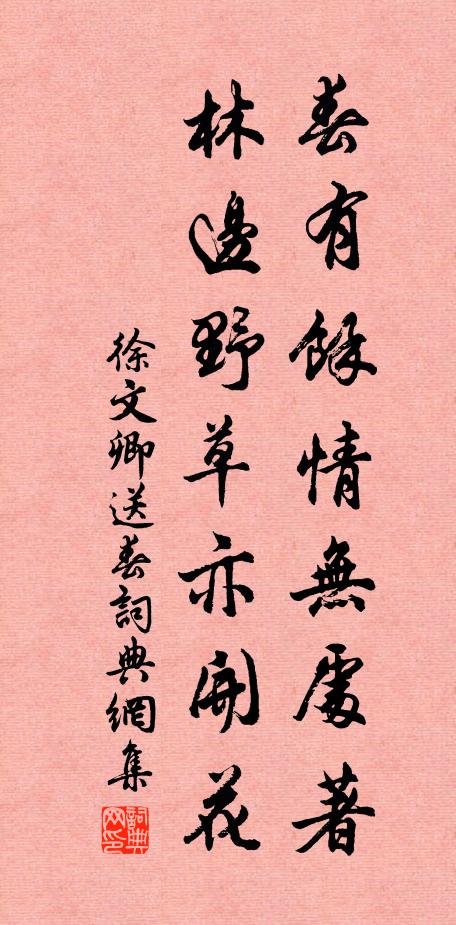 春有餘情無處著
林邊野草亦開花
徐文卿送春詞典網集
詞典网印